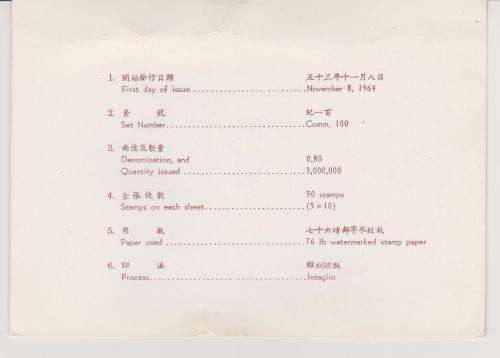 1. 開始發行日期 五十三年十一月八日
First day of issue .................... November 8, 1964
2. 套 號 紀一百
Set Number.................................Comm. 100
3. 面值及數量
Denomination, and 0.80
Quantity issued .............................3,000,000
4. 全張枚數 50 stamps
Stamps on each sheet........................(5×10)
5. 用 紙 七十六磅郵字水紋紙
Paper used ..................................76 lb watermarked stamp paper
6. 印 法 雕刻凹版
Process.......................................Intaglio